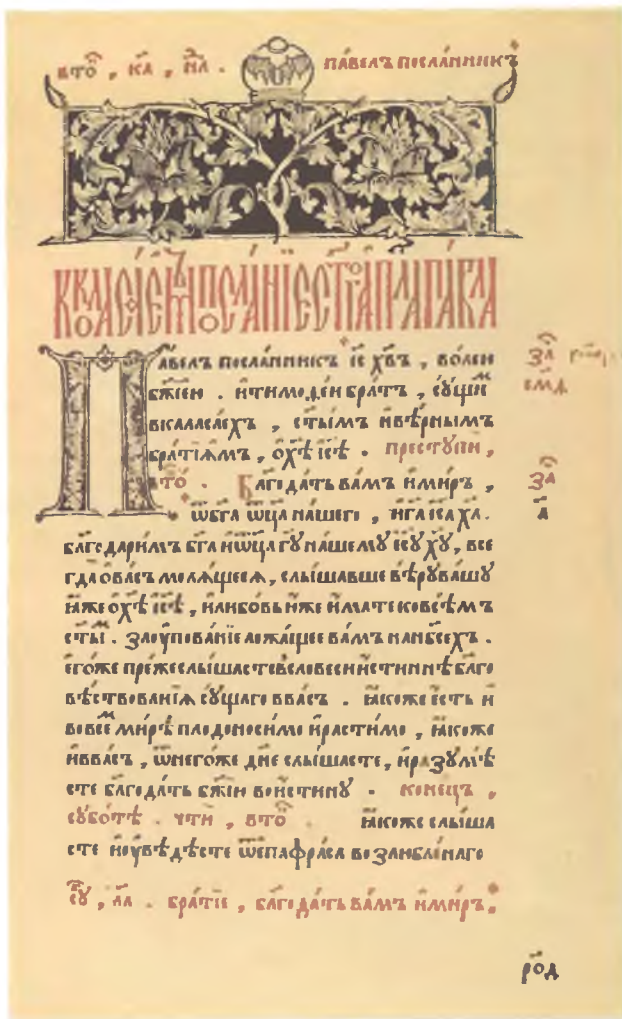 вто҇, ка, нл. павелъ посланникъ
ккласїемъ посланїе стго апла павла
Павелъ посланникъ іс хвъ, волею
бжїею. и тимоѳеи братъ, сущим
вкаласаехъ, стымъ и вѣрнымъ
братїямъ, о хѣ ісѣ. преступи,
вто. Благодать вамъ и миръ,
ѿ бга ѿца нашего, и га іса ха.
благодаримъ бга и ѿца гу нашему ісу ху, все
гда о васъ молящеся, слышавше вѣру вашу
ꙗже о хѣ ісѣ, и любовь юже имате ко всѣмъ
стым. за упованїе лежащее вамъ на нбсехъ.
егоже преже слышасте в словеси истиннѣ благо
вѣствованїя сущаго в васъ. ꙗкоже есть и
во всем мирѣ плодоносимо и растимо, ꙗкоже
и в васъ, ѿ негоже дне слышасте, и разумѣ
сте благодать бжїю воистину. конецъ,
суботѣ. чти, вто ꙗкоже слыша
сте и увѣдѣсте ѿ епафраса возлюбленаго
су, ла. братїе, благодать вамъ и миръ.
за
смд
за
а
род